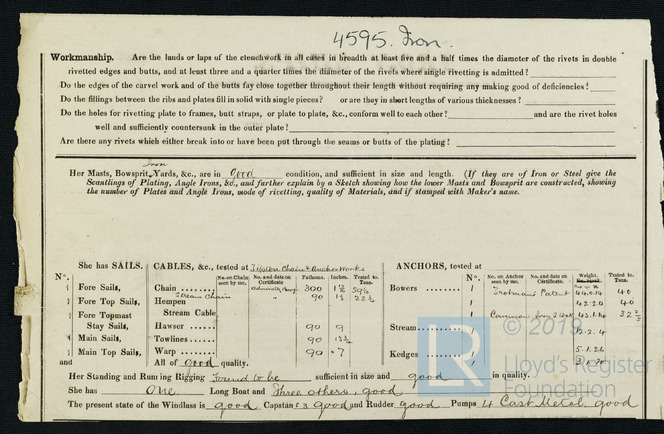 4595. Iron.
Workmanship. Are the lands or laps of the clenchwork in all cases in breadth at least five and a half times the diameter of the rivets in double
rivetted edges and butts, and at least three and a quarter times the diameter of the rivets where single rivetting is admitted?
Do the edges of the carvel work and of the butts fay close together throughout their length without requiring any making good of deficiencies?
Do the fillings between the ribs and plates fill in solid with single pieces? or are they in short lengths of various thicknesses?
Do the holes for rivetting plate to frames, butt straps, or plate to plate, &c., conform well to each other? and are the rivet holes
well and sufficiently countersunk in the outer plate?
Are there any rivets which either break into or have been put through the seams or butts of the plating?
Iron
Her Masts, Bowsprit, Yards, &c., are in good condition, and sufficient in size and length. (If they are of Iron or Steel give the
Scantlings of Plating, Angle Irons, &c., and further explain by a Sketch showing how the lower Masts and Bowsprit are constructed, showing
the number of Plates and Angle Irons, mode of rivetting, quality of Materials, and if stamped with Maker's name.
She has SAILS. CABLES, &c., tested at Tipton Chain & Anchor Works ANCHORS, tested at
Nº. No. on Chain seen by me. No. and date on Certificate Fathoms. Inches. Tested to. Tons. Nº. No. on Anchor seen by me. No. and date on Certificate. Weight. Tested to. Tons.
1 Fore Sails, Chain 300 Bowers 1 Trotman's Patent 40
Stream Chain
1 Fore Top Sails, Hempen 90 1 42.2.0 40
1 Fore Topmast Stream Cable 1
Stay Sails, Hawser 90 9 Stream
1 Main Sails, Towlines 90
1 Main Top Sails, Warp 90 7 Kedges
and All of good quality.
Her Standing and Running Rigging Found to be sufficient in size and good in quality.
She has One Long Boat and Three others, good
The present state of the Windlass is good Capstan & 3 good and Rudder good Pumps 4 Cast Metal good
© 2019
LR
Lloyd's Register
Foundation